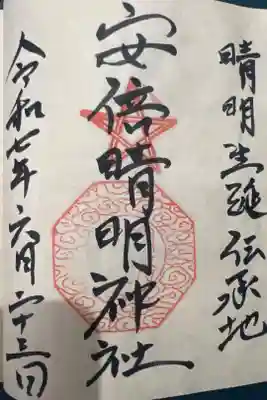 晴明生誕伝承地
安倍晴明神社
令和七年六月二十三日